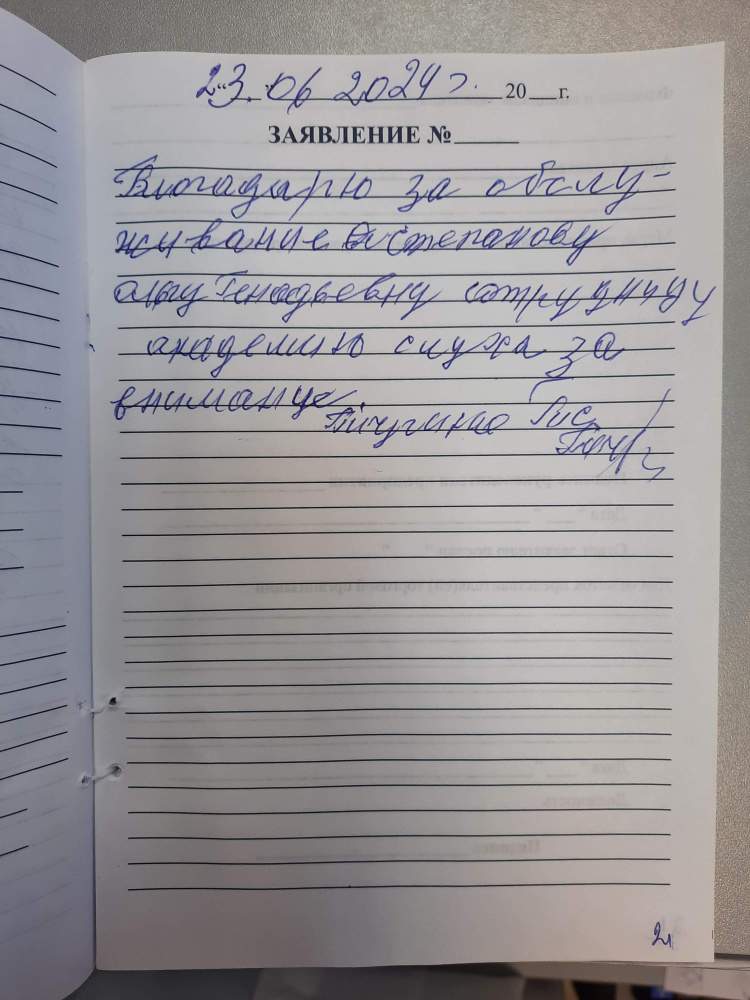 23. 06 2024 г. 20 г.
ЗАЯВЛЕНИЕ №
Благадарю за обслу-
живание Степанову
ольгу Генадьевну сотрудницу
академию слуха за
внимание.
2